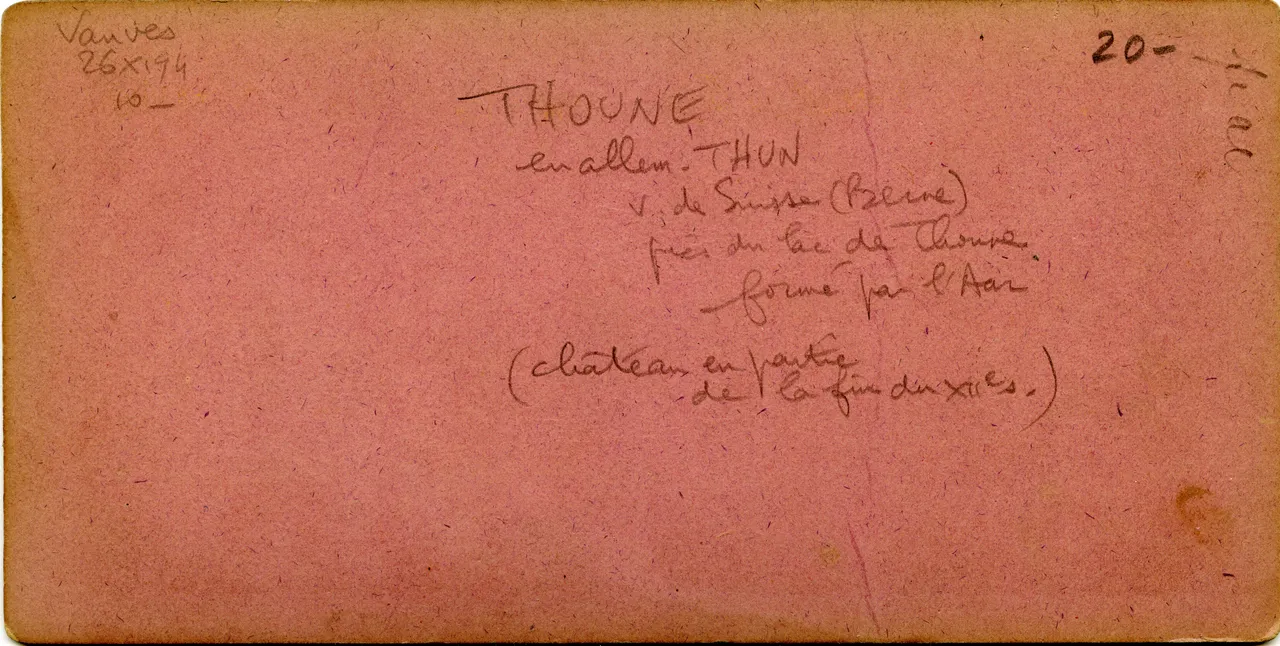 Vanves
26 XI 94
10 —
20 —
THOUNE
en allem. THUN
v. de Suisse (Berne)
près du lac de Thoune
formé par l'Aar
(château en partie
de la fin du XIIe s.)